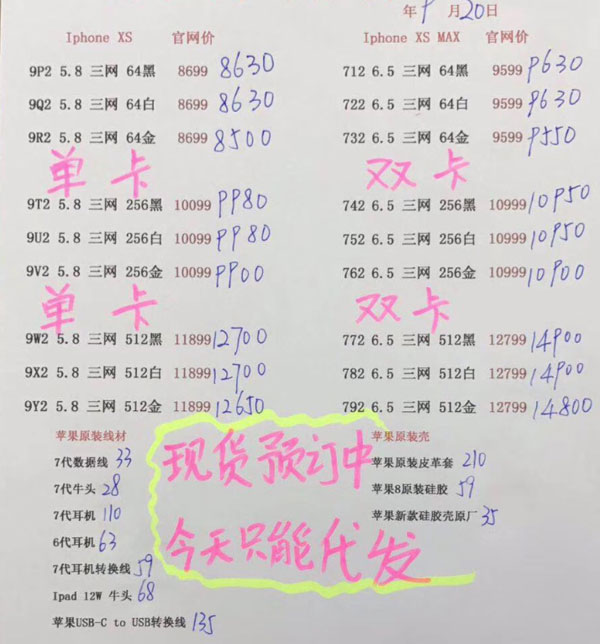 年9月20日
Iphone XS 官网价
9P2 5.8 三网 64黑 8699 8630
9Q2 5.8 三网 64白 8699 8630
9R2 5.8 三网 64金 8699 8500
单卡
9T2 5.8 三网 256黑 10099 9980
9U2 5.8 三网 256白 10099 9980
9V2 5.8 三网 256金 10099 9900
单卡
9W2 5.8 三网 512黑 11899 12700
9X2 5.8 三网 512白 11899 12700
9Y2 5.8 三网 512金 11899 12650
Iphone XS MAX 官网价
712 6.5 三网 64黑 9599 9630
722 6.5 三网 64白 9599 9630
732 6.5 三网 64金 9599 9550
双卡
742 6.5 三网 256黑 10999 10950
752 6.5 三网 256白 10999 10950
762 6.5 三网 256金 10999 10900
双卡
772 6.5 三网 512黑 12799 14900
782 6.5 三网 512白 12799 14900
792 6.5 三网 512金 12799 14800
苹果原装线材
7代数据线 33
7代牛头 28
7代耳机 110
6代耳机 63
7代耳机转换线 59
Ipad 12W 牛头 68
苹果USB-C to USB转换线 135
现货预订中
今天只能代发
苹果原装壳
苹果原装皮革套 210
苹果8原装硅胶 59
苹果新款硅胶壳原厂 35